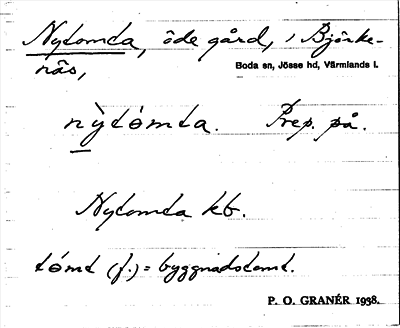 Nytomta, öde gård, i Björke-
näs,
Boda sn, Jösse hd, Värmlands l.
nỳtómta. Prep. på.
Nytomta kb.
tómt (f.) = byggnadstomt.
P. O. GRANÉR 1938.